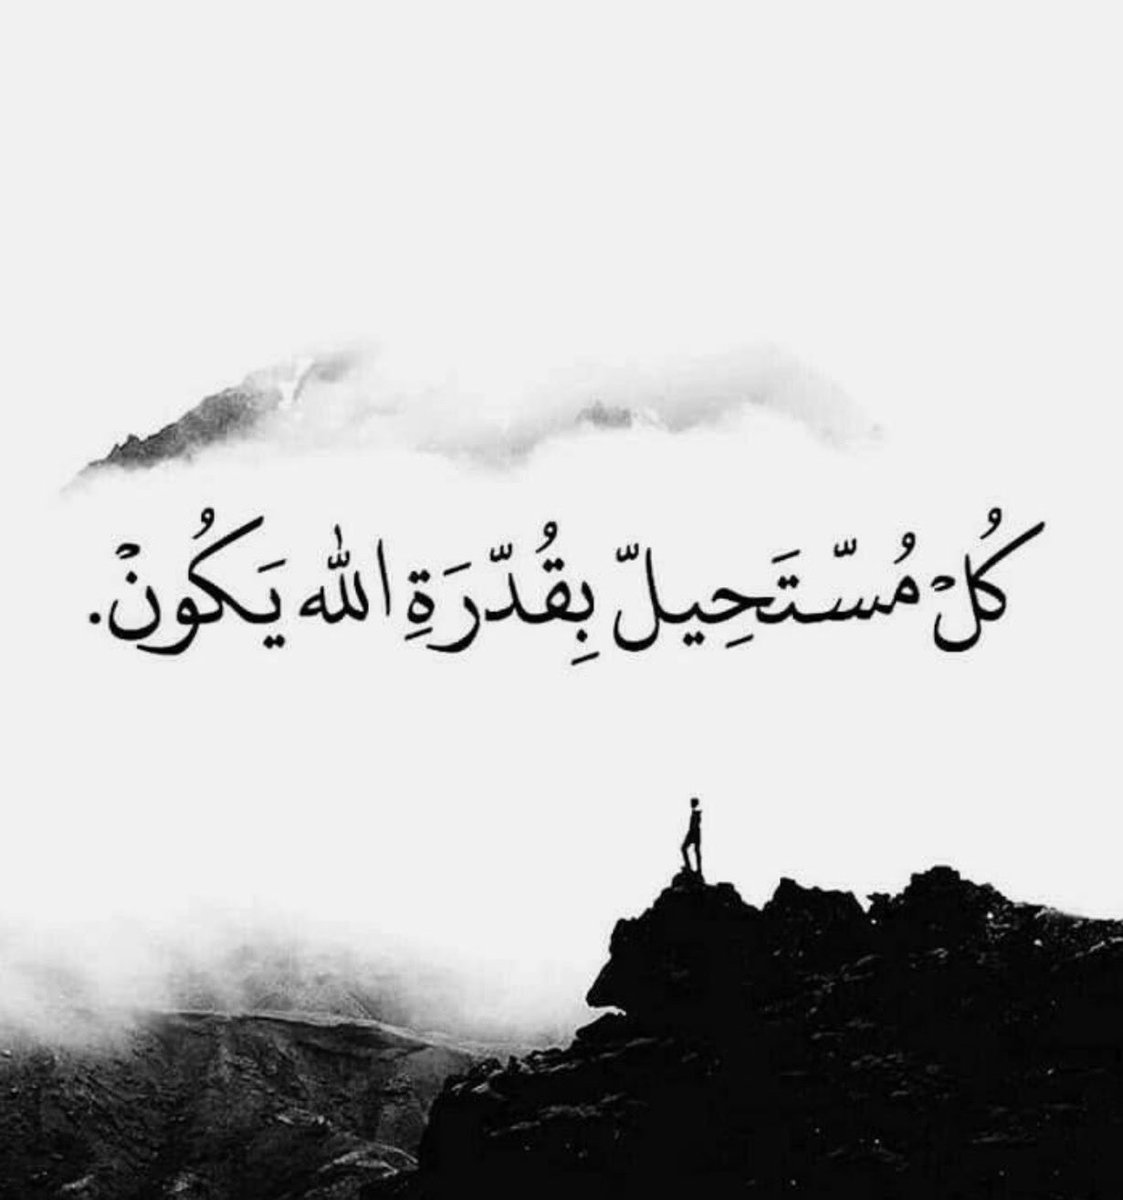 كُلۡ مُسّتَحِيلّ بِقُدّرَةِ الله يَكُونۡ.